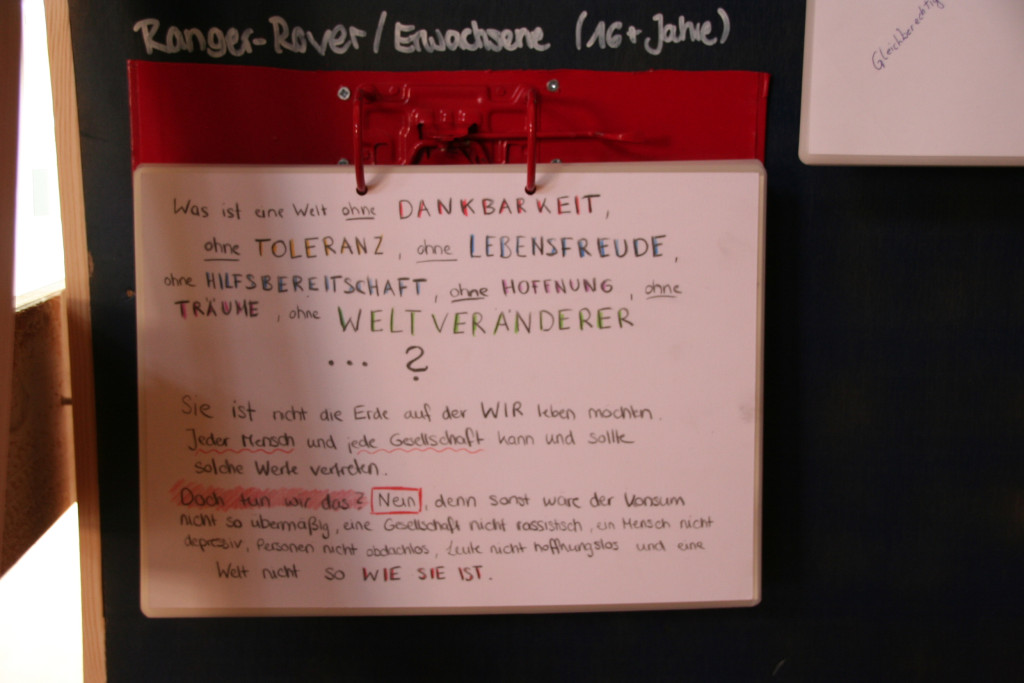 Ranger-Rover/Erwachsene (16+ Jahre)
Gleichberechtig
Was ist eine Welt ohne DANKBARKEIT,
ohne TOLERANZ, ohne LEBENSFREUDE,
ohne HILFSBEREITSCHAFT, ohne HOFFNUNG, ohne
TRÄUME, ohne WELTVERÄNDERER
... ?
Sie ist nicht die Erde auf der WIR leben möchten.
Jeder Mensch und jede Gesellschaft kann und sollte
solche Werte vertreten.
Doch tun wir das? Nein, denn sonst wäre der Konsum
nicht so übermäßig, eine Gesellschaft nicht rassistisch, ein Mensch nicht
depressiv, Personen nicht obdachlos, Leute nicht hoffnungslos und eine
Welt nicht so WIE SIE IST.